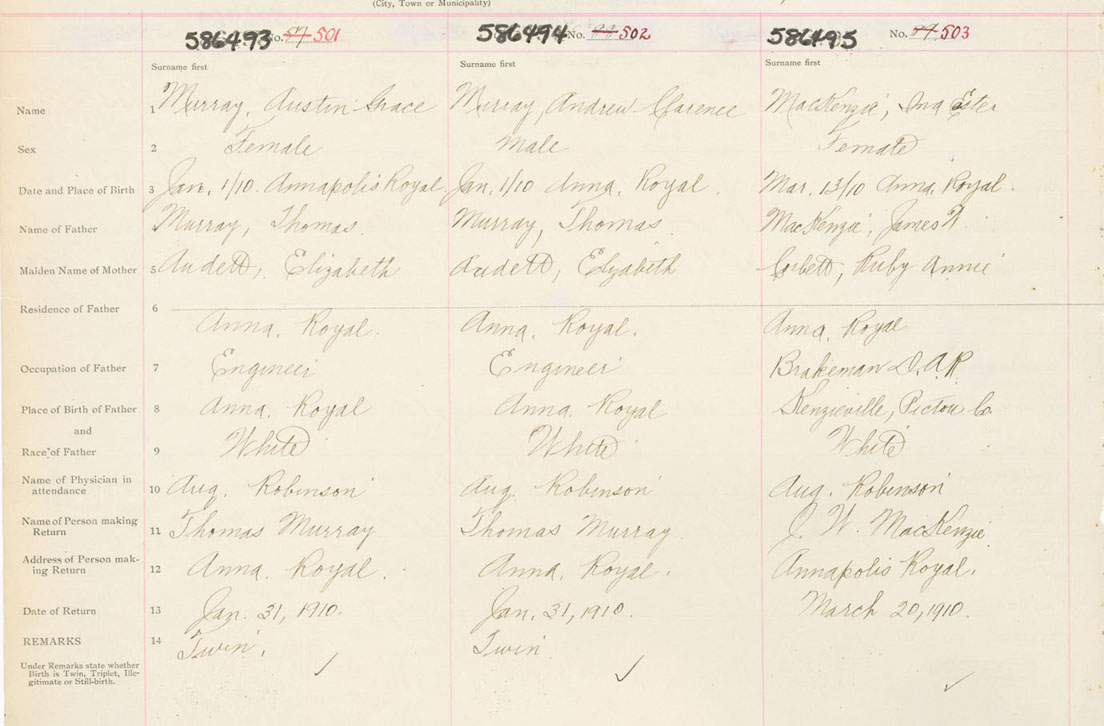 (City, Town or Municipality)
586493 No. 501
586494 No. 502
586495 No. 503
Surname first Surname first Surname first
Name 1 Murray, Austin Grace Murray, Andrew Clarence MacKenzie, Ina Ester
Sex 2 Female Male Female
Date and Place of Birth 3 Jan. 1/10. Annapolis Royal. Jan. 1/10 Anna. Royal. Mar. 13/10 Anna. Royal.
Name of Father Murray, Thomas. Murray, Thomas. MacKenzie, James W.
Maiden Name of Mother 5 Audett, Elizabeth Audett, Elizabeth Corbett, Ruby Annie
Residence of Father 6
Anna. Royal. Anna. Royal. Anna. Royal
Occupation of Father 7 Engineer Engineer Brakeman D.A.R
Place of Birth of Father 8 Anna. Royal Anna. Royal Kenzieville, Pictou Co.
and
Race of Father 9 White White White
Name of Physician in
attendance 10 Aug. Robinson Aug. Robinson Aug. Robinson
Name of Person making
Return 11 Thomas Murray Thomas Murray. J. W. MacKenzie.
Address of Person mak-
ing Return 12 Anna. Royal. Anna. Royal. Annapolis Royal.
Date of Return 13 Jan. 31, 1910. Jan. 31, 1910. March 20, 1910.
REMARKS 14 Twin. Twin
Under Remarks state whether
Birth is Twin, Triplet, Ille-
gitimate or Still-birth.